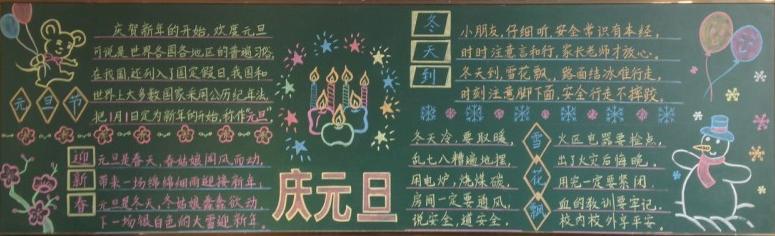 元旦节
庆贺新年的开始,欢度元旦
可说是世界各国各地区的普遍习俗,
在我国,还列入了国定假日,我国和
世界上大多数国家采用公历纪年法,
把1月1日定为新年的开始,称作元旦.
迎新春
元旦是春天,春姑娘闻风而动,
带来一场绵绵细雨迎接新年,
元旦是冬天,冬姑娘蠢蠢欲动,
下一场银白色的大雪迎新年.
庆元旦
冬天到
小朋友,仔细听,安全常识有本经,
时时注意言和行,家长老师才放心.
冬天到,雪花飘,路面结冰难行走,
时刻注意脚下面,安全行走不摔跤.
冬天冷,要取暖,
乱七八糟遍地摆,
用电炉,烧煤碳,
房间一定要通风,
说安全,道安全,
雪花飘
火区电器要检点,
出了火灾后悔晚.
用完一定要紧闭.
血的教训要牢记.
校内校外享平安.